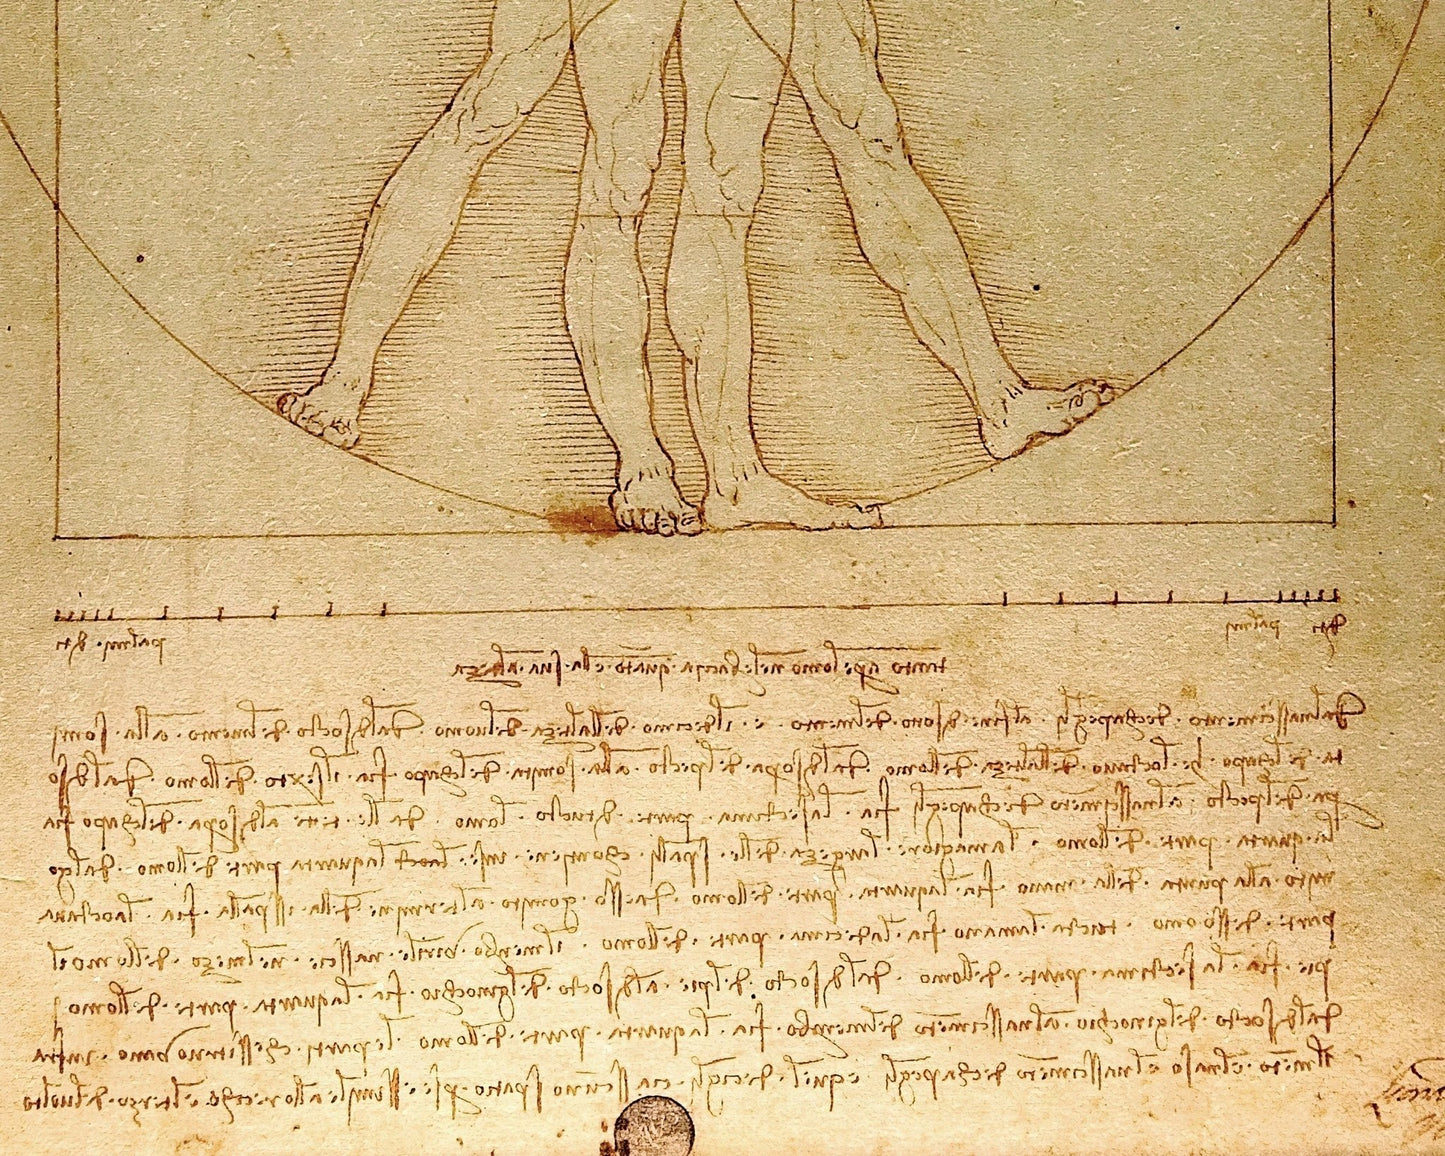 diti · palmi palmi diti
tanto apre lomo nele braccia quāto ella sua alteza
dal nasscimēto de chapegli al fine di sotto del mento · e · il decimo delalteza de luomo · dal di socto del mento ala somi
ta del chapo he loctavo dellalteza dellomo · dal di sopra del pecto alla somita del chapo fia il sexto dellomo · dal di so
pra del pecto al nasscimēto de chapegli fia la sectima parte di tucto lomo · dalle tette al di sopra del chapo fia
la quarta parte dellomo · la magiore largeza delle spalli chontiene inse la oct la quarta parte dellomo · dal go
mito alla punta della mano fia la quarta parte dellomo · da esso gomito al termine della isspalla fia la octava
parte desso omo · tucta la mano fia la decima parte dellomo · il menbro virile nasscie nel mezo dellomo · il
pie fia la sectima parte dellomo · dal di socto del pie al di socto del ginochio fia la quarta parte dellomo ·
dal di socto del ginochio al nasscimēto del menbro fia la quarta parte dellomo · le parti chessi truovano infra
il mēto el naso el nasscimēto de chapegli e quel de cigli ciasscuno spatio per se essimile allorechio el terzo del volto